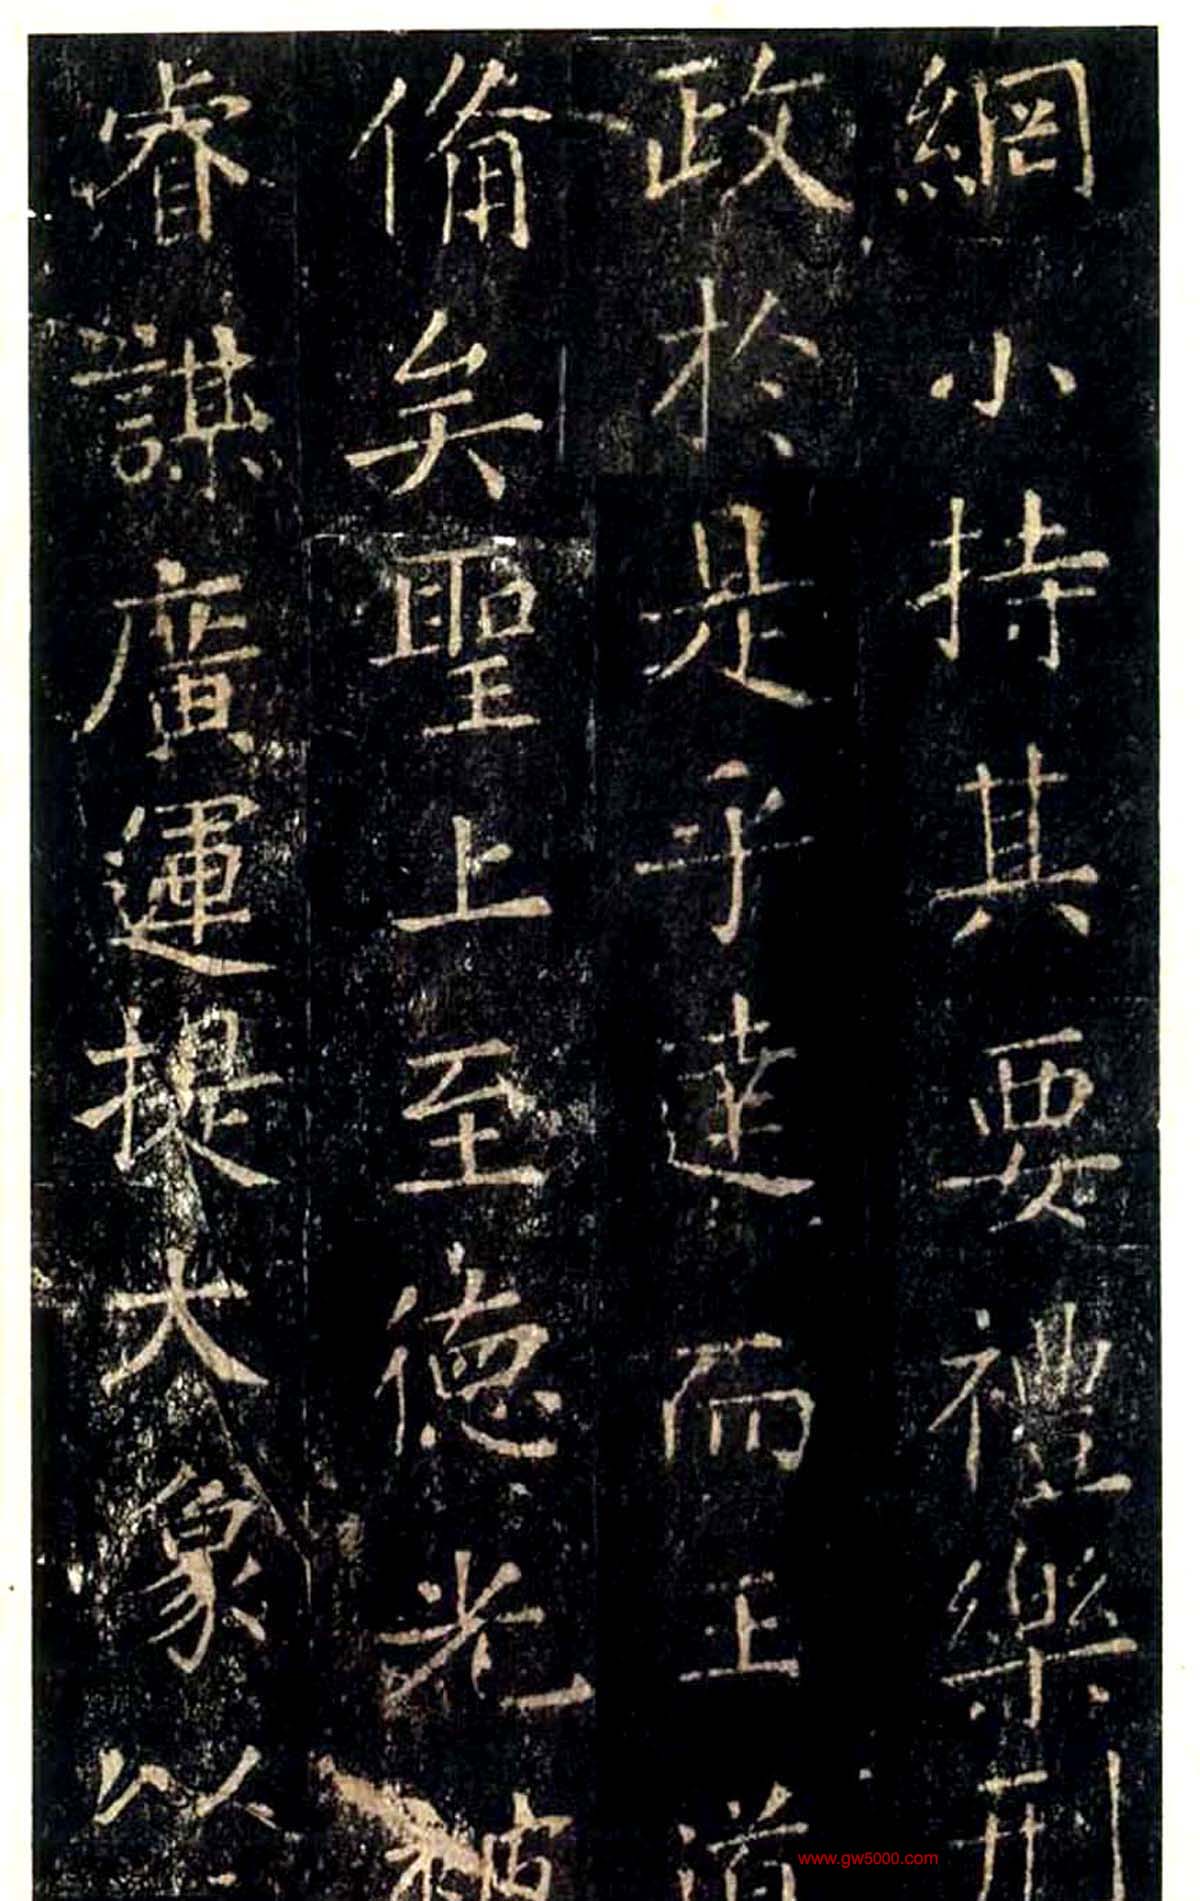 網小持其要禮樂刑
政於是乎達而王道
備矣聖上至德光被
睿謀廣運提大象以
www.gw5000.com